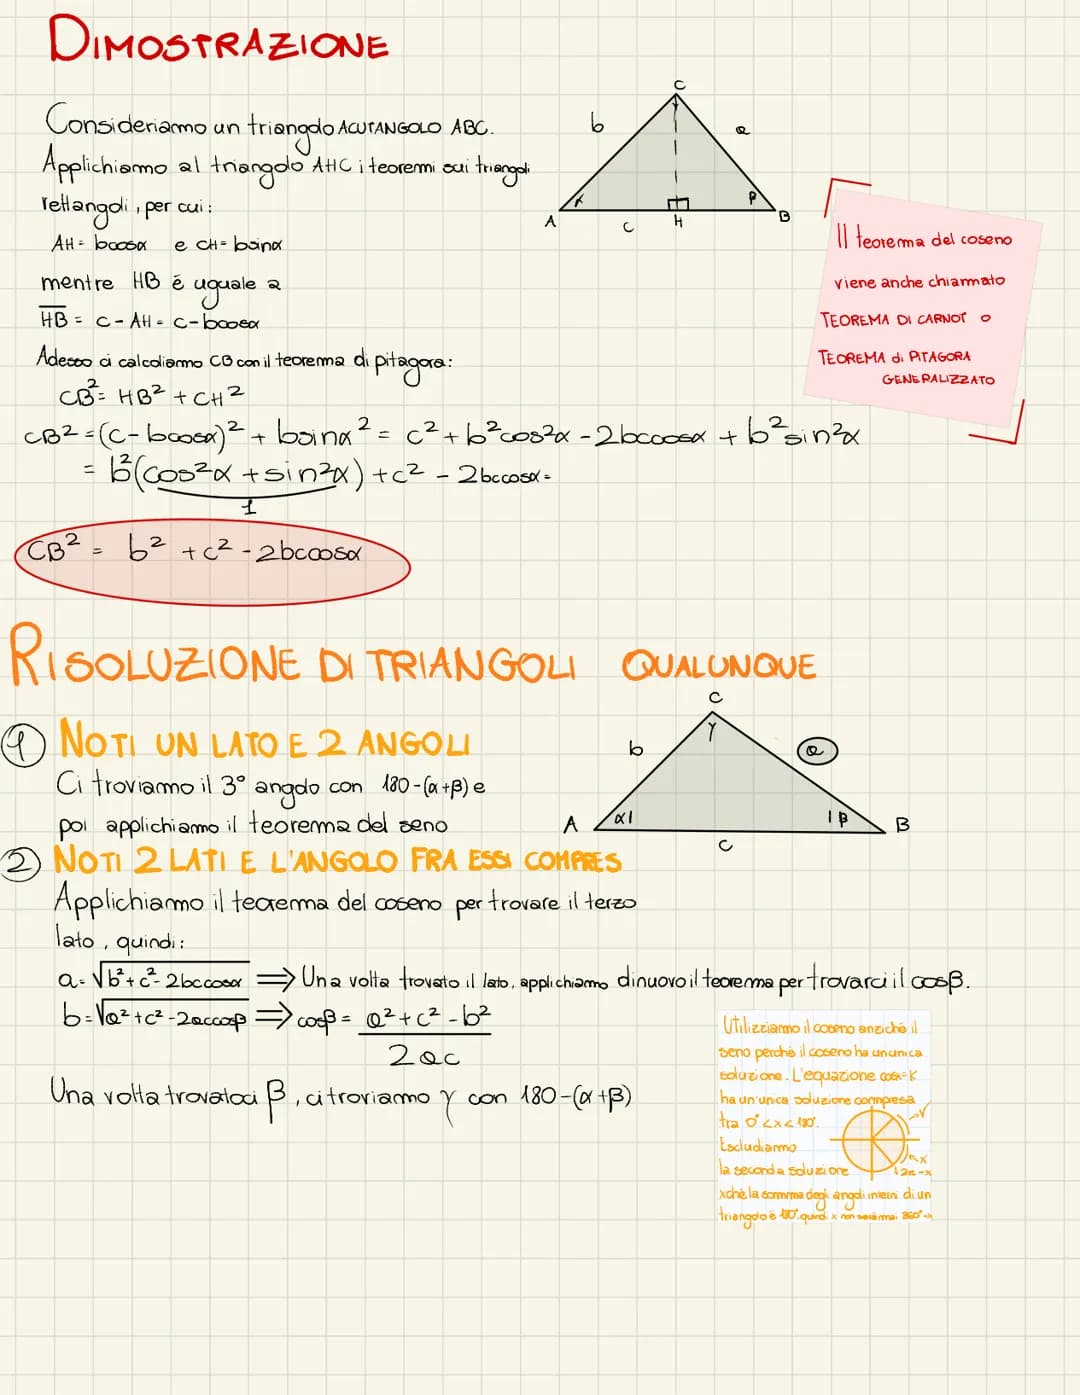 DIMOSTRAZIONE
Consideriamo un triangolo ACUTANGOLO ABC.
Applichiamo al triangolo AHC i teoremi sui triangoli
rettangoli, per cui:
AH = bcosα e CH = bsinα
mentre HB é uguale a
HB = c - AH = c - bcosα
Adesso ci calcoliamo CB con il teorema di pitagora:
CB² = HB² + CH²
CB² = (c - bcosα)² + bsinα² = c² + b²cos²α - 2bccosα + b²sin²α
= b²(cos²α + sin²α) + c² - 2bccosα =
1
CB² = b² + c² - 2bccosα
C
γ
b
a
α
β
A
c
H
B
Il teorema del coseno
viene anche chiamato
TEOREMA DI CARNOT o
TEOREMA di PITAGORA
GENERALIZZATO
RISOLUZIONE DI TRIANGOLI QUALUNQUE
1 NOTI UN LATO E 2 ANGOLI
Ci troviamo il 3° angolo con 180-(α+β) e
poi applichiamo il teorema del seno
C
γ
b
a
α
β
A
B
c
2 NOTI 2 LATI E L'ANGOLO FRA ESSI COMPRES
Applichiamo il teorema del coseno per trovare il terzo
lato, quindi:
a = √b² + c² - 2bccosα ⇒ Una volta trovato il lato, applichiamo dinuovo il teorema per trovarci il cosβ.
b = √a² + c² - 2accosβ ⇒ cosβ = a² + c² - b²
2ac
Una volta trovatoci β, ci troviamo γ con 180-(α+β)
Utilizziamo il coseno anziché il
seno perché il coseno ha un'unica
soluzione. L'equazione cosx=K
ha un'unica soluzione compresa
tra 0°<x<180°.
Escludiamo
la seconda soluzione
x
2π-x
xché la somma degli angoli interni di un
triangolo è 180°, quindi x non sarà mai 360°-x